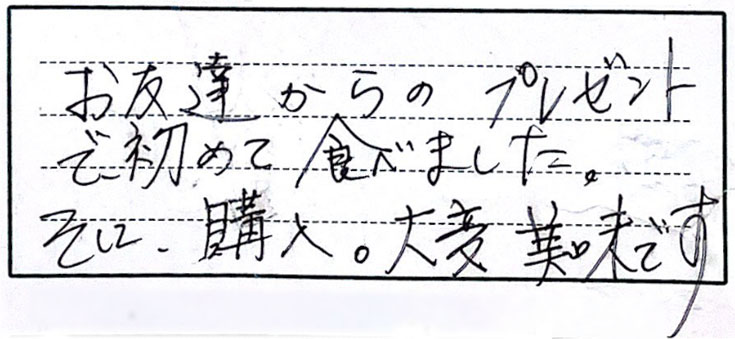 お友達からの プレゼント
で初めて食べました。
そして、購入。大変美味です